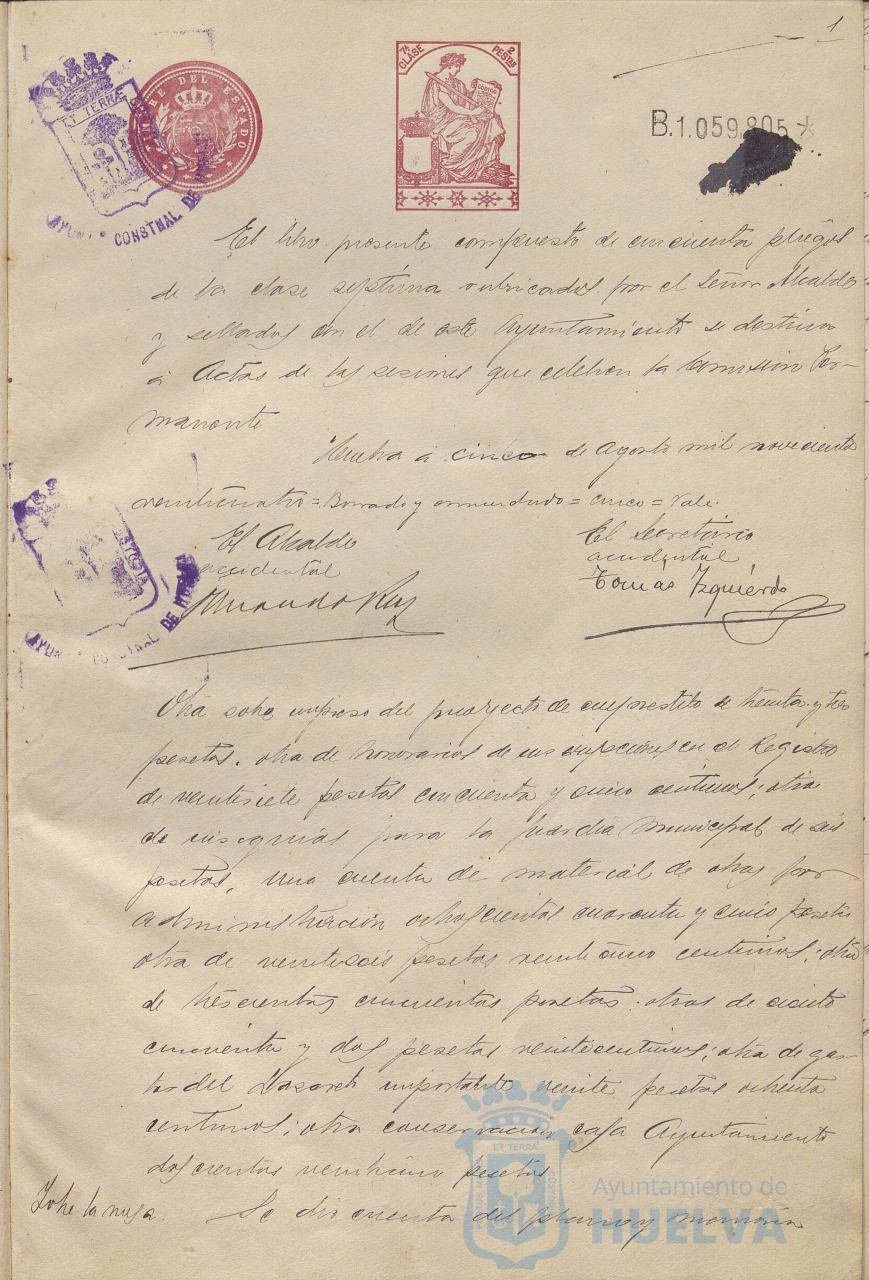 1
7ª CLASE
2 PESTAS
TIMBRE DEL ESTADO
ET TERRÆ
AYUNTº CONSTNAL DE HUELVA
B.1.059.805 *
El libro presente compuesto de cincuenta pliegos
de la clase septima rubricados por el Señor Alcalde
y sellados con el de este Ayuntamiento se destina
á Actas de las sesiones que celebren la Comision Per-
manente
Huelva á cinco de Agosto mil novecientos
veinticuatro = Borrado y enmendado = cinco = Vale.
El Alcalde
accidental
El Secretario
accidental
Tomás Izquierdo
AYUNTº CONSTNAL DE HUELVA
Otra sobre impreso del proyecto de emprestito de treinta y tres
pesetas, otra de honorarios de inscripciones en el Registro
de veintisiete pesetas cincuenta y cinco centimos; otra
de insignias para la Guardia Municipal de seis
pesetas, una cuenta de material de obras por
administración ochocientas cuarenta y cinco pesetas
otra de veintiseis pesetas veinticinco centimos; otra
de trescientas cincuenta pesetas; otras de ciento
cincuenta y dos pesetas veinte centimos; otra de gas-
tos del Lazareto importante veinte pesetas ochenta
centimos; otra conservacion casa Ayuntamiento
doscientas veinticinco pesetas
Se dio cuenta del plano y memoria
ET TERRA
Ayuntamiento de
HUELVA